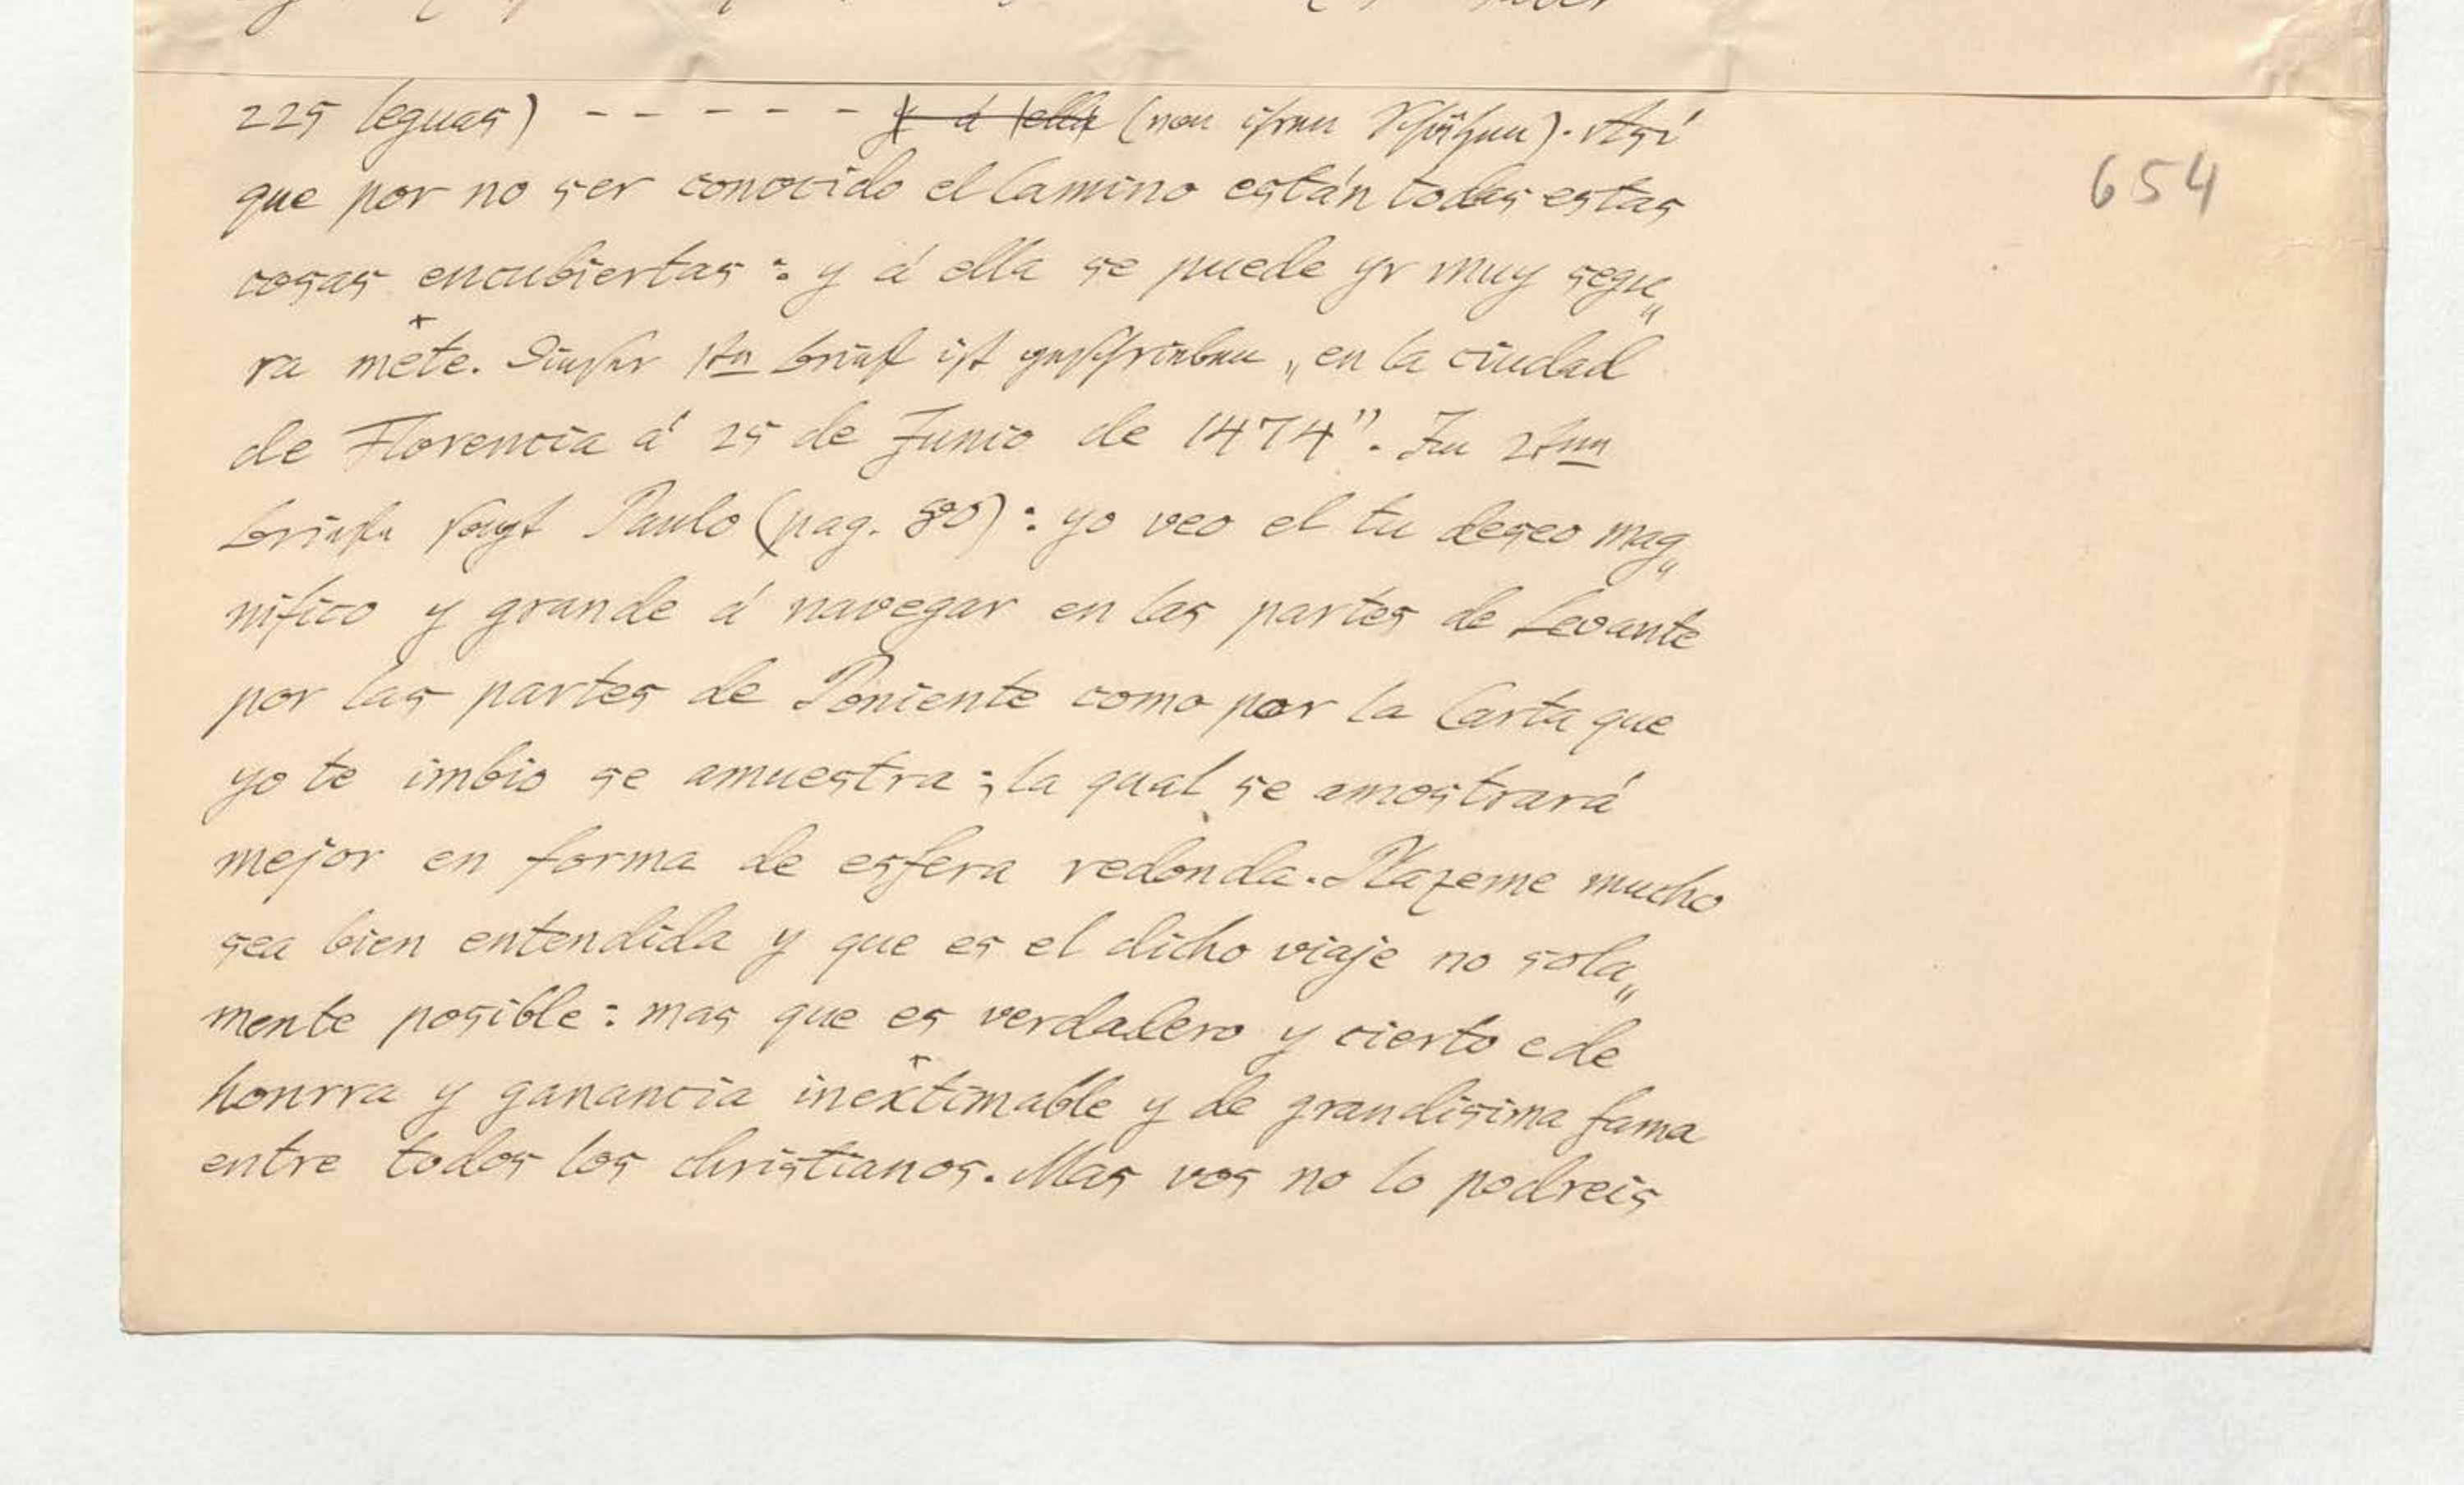 225 leguas) - - - - - - y á ella (von ihren Schätzen). Así
654
que por no ser conocido el Camino están todas estas
cosas encubiertas: y á ella se puede yr muy segu„
ra mēte. Dieser 1te Brief ist geschrieben „en la ciudad
de Florencia á 25 de Junio de 1474”. Im 2ten
Briefe sagt Paulo (pag. 80): yo veo el tu deseo mag„
nifico y grande á navegar en las partes de Levante
por las partes de Poniente como por la Carta que
yo te imbio se amuestra; la qual se amostrará
mejor en forma de esfera redonda. Plazeme mucho
sea bien entendida y que es el dicho viaje no sola„
mente posible: mas que es verdadero y cierto e de
honrra y ganancia inextimable y de grandisima fama
entre todos los christianos. Mas vos no lo podreis